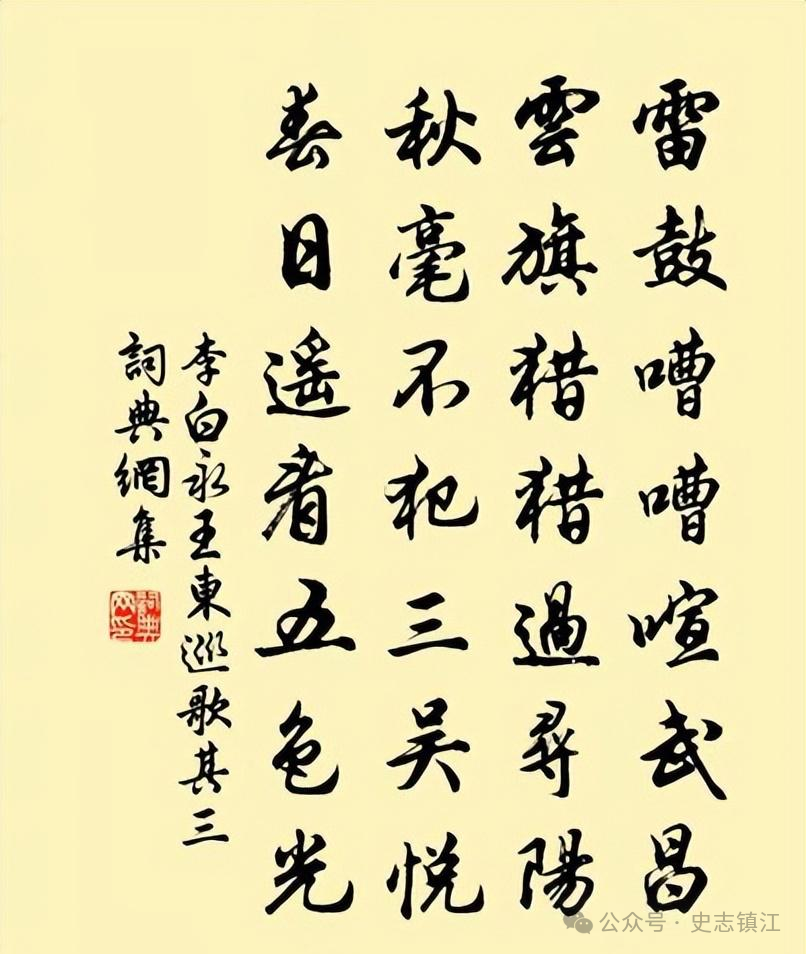 雷鼓嘈嘈喧武昌
雲旗猎猎過尋陽
秋毫不犯三吴悦
春日遥看五色光
李白永王東巡歌其三
詞典網集
詞典
网印
公众号·史志镇江